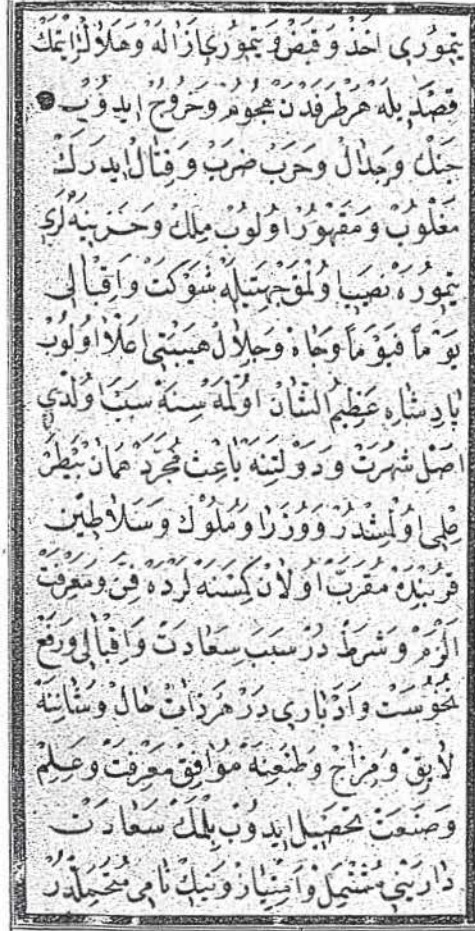 تیمُورُی اَخذْ وَ قَبَضْ وَ تیمُورُی اِزَالَه وَ هَلَاكْ اِیتمَكْ
قَصْدِ یلَه هَرْطَرَفدَنْ هُجُومْ وَ خُرُوجْ ایدُوبْ
جَنْكْ وَ جِدَالْ وَ حَرَبْ ضَربْ وَ قِتَالْ ایدَرَكْ
مَغْلُوبْ وَ مَقْهُورْ اوُلوُبْ مِلكْ وَ خَزینَه لَرِی
تیمُورَه نَصیبْ اوُلمَق جِهَتیلَه شَوْكَتْ وَ اِقبَالی
یَوْمًا فَیَوْمًا وَ جَاهْ وَ جَلَالْ هَیبَتی اَعْلَا اوُلوُبْ
پَادِشَاهِ عَظِیمُ الشَّانْ اوُلمَه سِنَه سَبَبْ اوُلدی
اَصْل شُهرَتْ وَ دَوْلَتِنَه بَاعِثْ مُجَرَّدْ هَمَانْ بَیطَرْ
عِلمی اوُلمِشدُرْ وَ وُزَرَا وَ مُلُوكْ وَ سَلَاطینْ
قُربُندَه مُقَرَّبْ اوُلَانْ كِمسَنَه لَرْدَه فَنْ وَ مَعرِفَتْ
اَلزَمْ وَ شَرطْ دُرْ سَبَبِ سَعَادَتْ وَ اِقبَالی وَ رَفعِ
نُحُوسَتْ وَ اَدْبَارِی دَرْ هَرذَاتْ حَالْ وَ شَانِنَه
لَایِقْ وَ مِزَاجْ وَ طَبْعِنَه مُوَافِقْ مَعرِفَتْ وَ عِلمْ
وَ صَنعَتْ تَحصِیلْ ایدُوبْ بِلمَكْ سَعَادَتْ
دَارَینی مُشتَمِلْ وَ اِمتِیَازْ وَ نیكْ نَامی مُتَحَمِلدُرْ